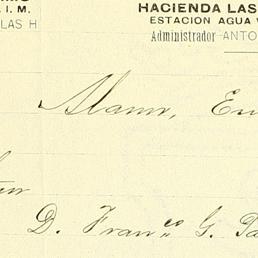 HACIENDA LAS
. I. M.
ESTACION AGUA
LAS H
Administrador ANTO
Alamo, En
D. Fran.co G.